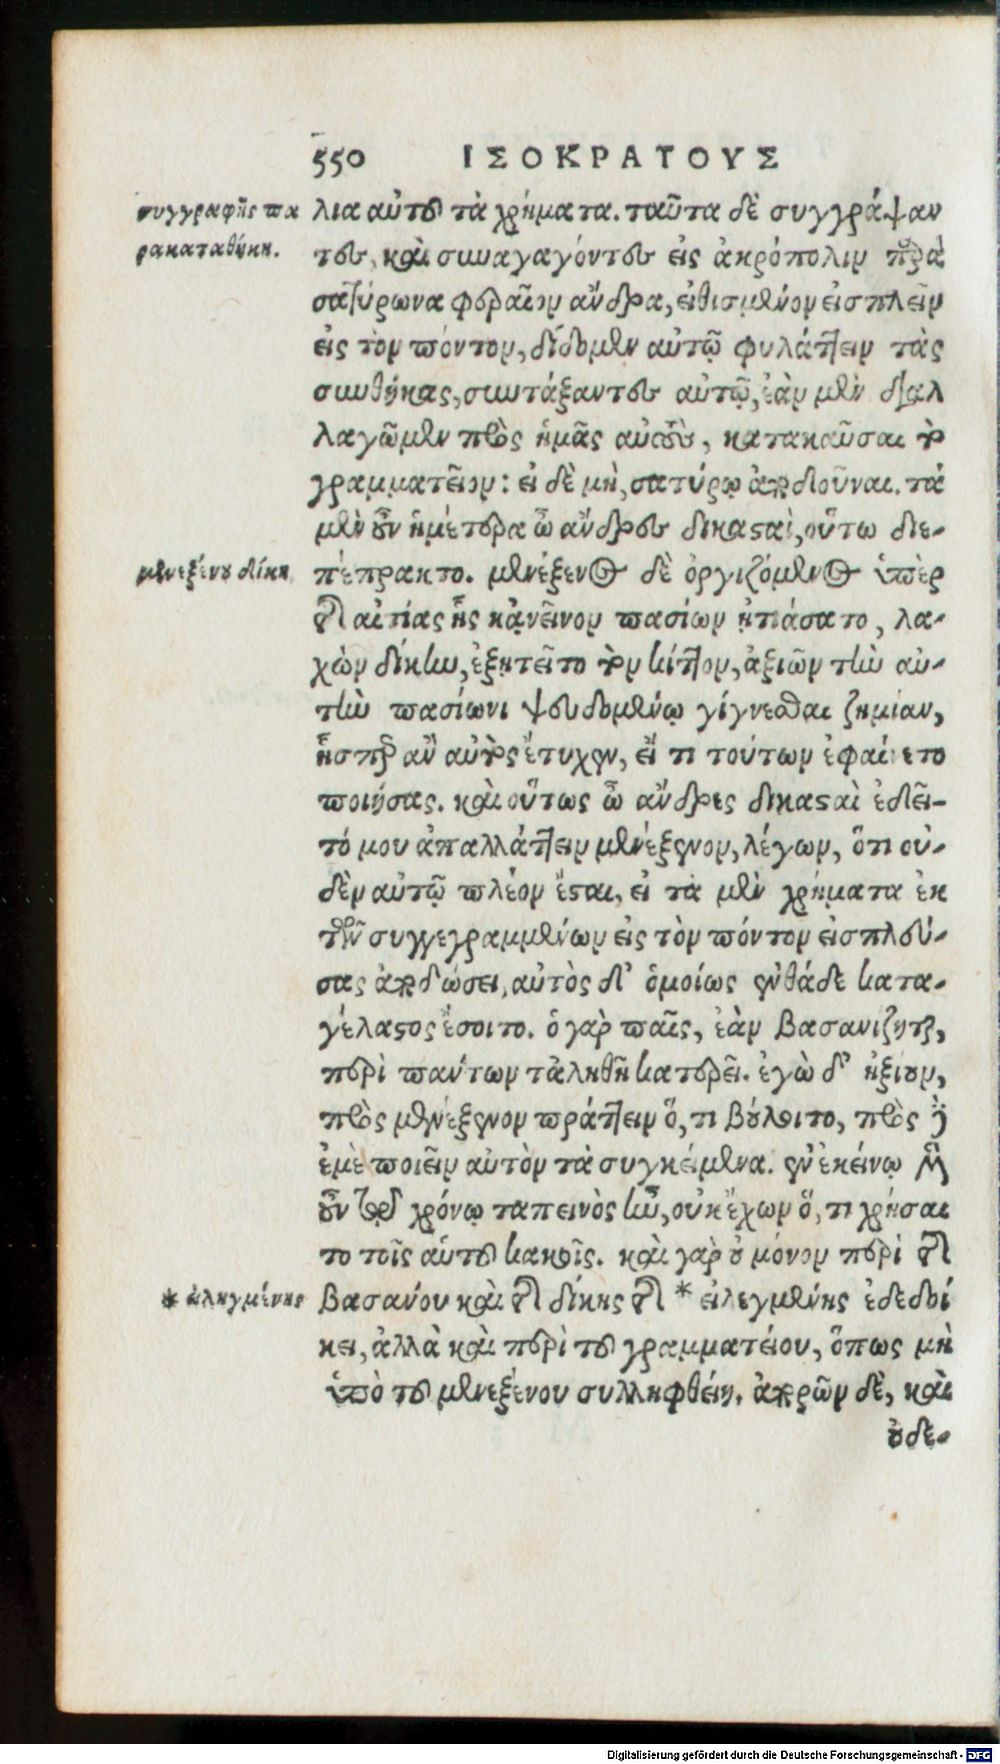 550 ΙΣΟΚΡΑΤΟΥΣ
συγγραφῆς πα
ρακαταθήκη.
λια αὐτοῦ τὰ χρήματα. ταῦτα δὲ συγγράψαν
τες, καὶ συναγαγόντες εἰς ἀκρόπολιν πυρὰ
σατύρωνα φεραῖον ἄνδρα, εἰθισμένον εἰσπλεῖν
εἰς τὸν πόντον, δίδομεν αὐτῷ φυλάττειν τὰς
συνθήκας, συντάξαντες αὐτῷ, ἐὰν μὲν διαλ
λαγῶμεν πρὸς ἡμᾶς αὐτοὺς, κατακαῦσαι τὸ
γραμματεῖον: εἰ δὲ μὴ, σατύρῳ ἀποδιοῦναι. τὰ
μὲν οὖν ἡμέτερα ὦ ἄνδρες δικασταὶ, οὕτω διε-
μενεξένου δίκη
πέπρακτο. μενέξενος δὲ ὀργιζόμενος ὑπὲρ
τῆς αἰτίας ἧς κᾀκεῖνον πασίων ᾐτιάσατο, λα-
χὼν δίκην, ἐξῃτεῖτο τὸν κίττον, ἀξιῶν τὴν αὐ-
τὴν πασίωνι ψευδομένῳ γίγνεσθαι ζημίαν,
ἧσπερ ἂν αὐτὸς ἔτυχεν, εἴ τι τούτων ἐφαίνετο
ποιήσας. καὶ οὕτως ὦ ἄνδρες δικασταὶ ἐδεῖ-
τό μου ἀπαλλάττειν μενέξενον, λέγων, ὅτι οὐ-
δὲν αὐτῷ πλέον ἔσται, εἰ τὰ μὲν χρήματα ἐκ
τῶν συγγεγραμμένων εἰς τὸν πόντον εἰσπλεύ-
σας ἀποδώσει, αὐτὸς δ' ὁμοίως ἐνθάδε κατα-
γέλαστος ἔσοιτο. ὁ γὰρ παῖς, ἐὰν βασανίζηται,
περὶ πάντων τἀληθῆ κατερεῖ. ἐγὼ δ' ἠξίουν,
πρὸς μενέξενον πράττειν ὅ, τι βούλοιτο, πρὸς δ'
ἐμὲ ποιεῖν αὐτὸν τὰ συγκείμενα. ἐν ἐκείνῳ μὲν
οὖν τῷ χρόνῳ ταπεινὸς ἦν, οὐκ ἔχων ὅ, τι χρήσαι
το τοῖς αὑτοῦ κακοῖς. καὶ γὰρ οὐ μόνον περὶ τῆς
* ἀληγμένης
βασάνου καὶ τῆς δίκης τῆς * εἰλεγμένης ἐδεδοί
κει, ἀλλὰ καὶ περὶ τοῦ γραμματείου, ὅπως μὴ
ὑπὸ τοῦ μενεξένου συλληφθείη. ἀπορῶν δὲ, καὶ
οὐδε-
Digitalisierung gefördert durch die Deutsche Forschungsgemeinschaft - DFG